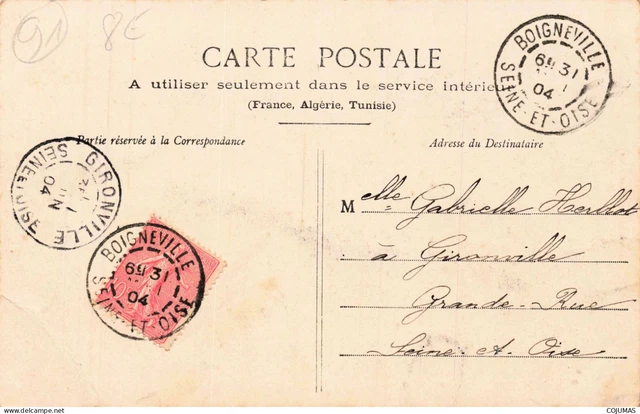 91
8€
CARTE POSTALE
A utiliser seulement dans le service intérieur
(France, Algérie, Tunisie)
BOIGNEVILLE
6E 31
04
SEINE-ET-OISE
Partie réservée à la Correspondance
Adresse du Destinataire
GIRONVILLE
1
JUIN
04
SEINE ET OISE
BOIGNEVILLE
6E 31
04
SEINE-ET-OISE
Melle Gabrielle
à Gironville
Grande-Rue
Seine-et-Oise
COJUMAS